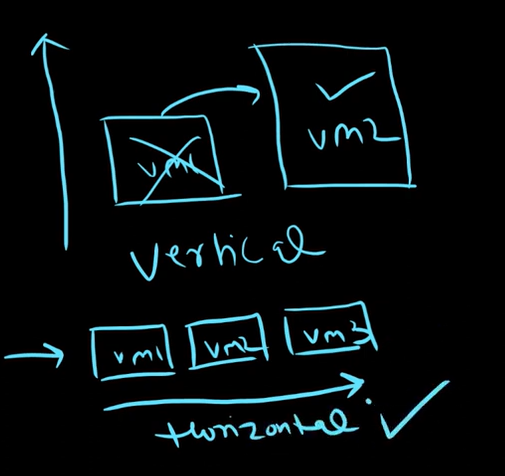 vm1
vm2
Vertical
vm1 vm2 vm3
Horizontal